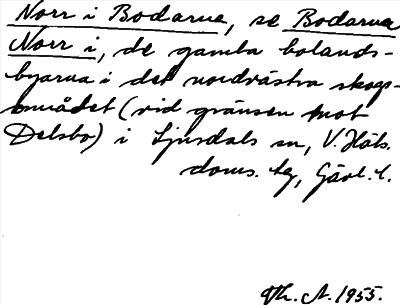 Norr i Bodarna, se Bodarna
Norr i, de gamla bolands-
byarna i det nordvästra skogs-
området (vid gränsen mot
Delsbo) i Ljusdals sn, V. Häls.
doms. tg, Gävl. l.
Th. A. 1955.